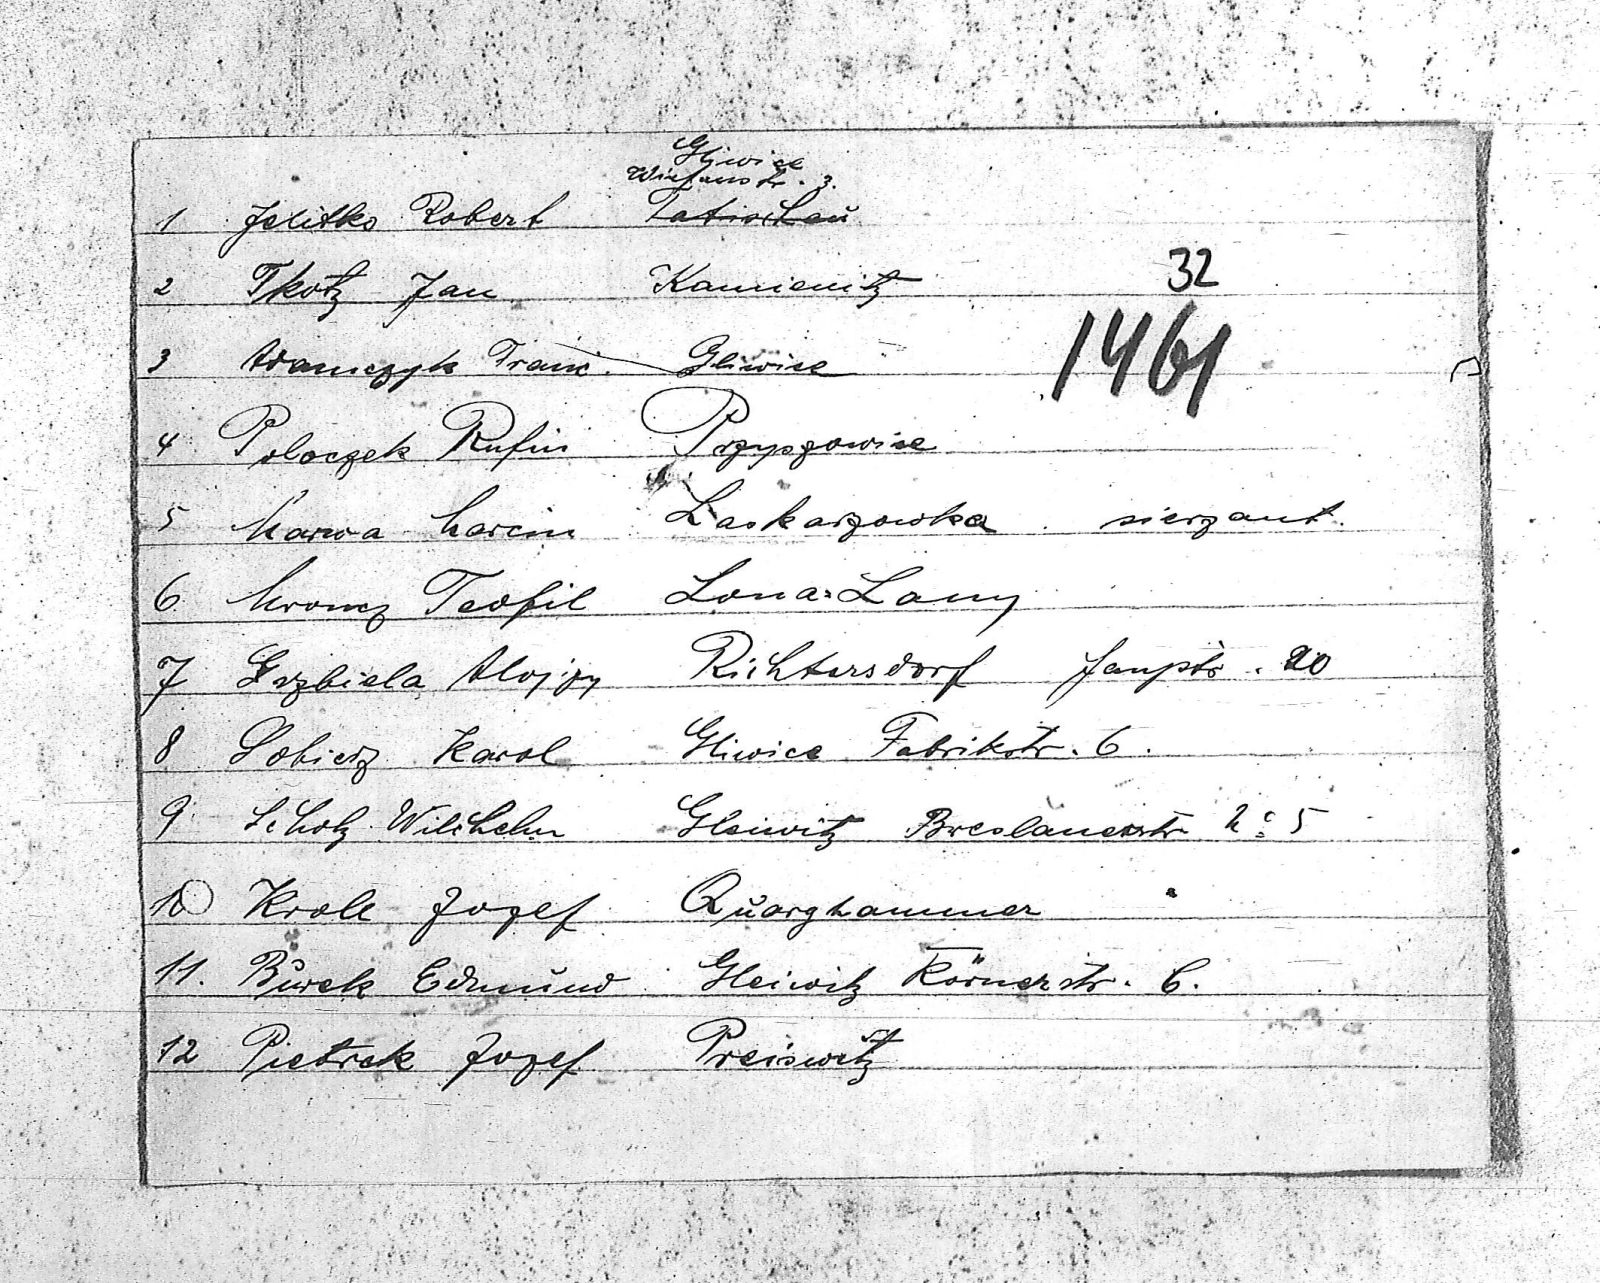 Gliwice
Wiesenstr. 3.
1 Jelitko Robert Latischau
2 Tkotz Jan Kamienitz
32
3 Adamczyk Franc. Gliwice
1461
4 Poloczek Rufin Przyszowice
5 Marwa Marcin Laskarzowka sierzant.
6 Mroncz Teofil Lona-Lany
7 Grzbiela Alojzy Richtersdorf 20
8 Sobierz Karol Gliwice Fabrikstr. 6.
9. Scholz Wilchelm Gleiwitz Breslauerstr. No 5
10 Krole Jozef Quarghammer
11. Burek Edmund Gleiwitz Körnerstr. 6.
12 Pietrek Jozef Preiswitz